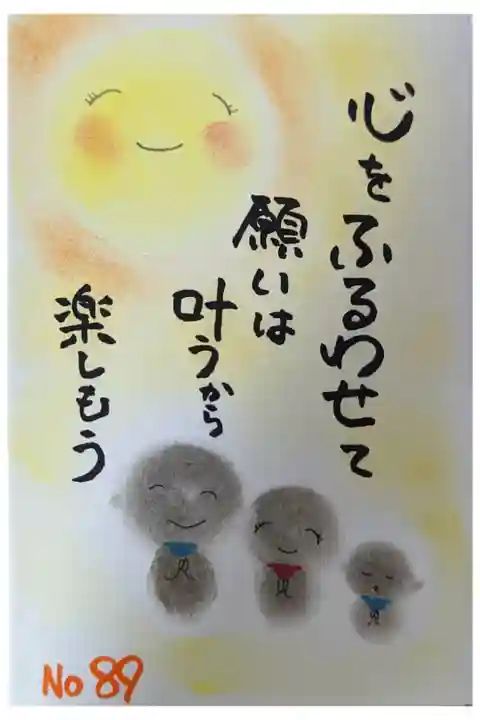 心をふるわせて
願いは
叶うから
楽しもう
No 89